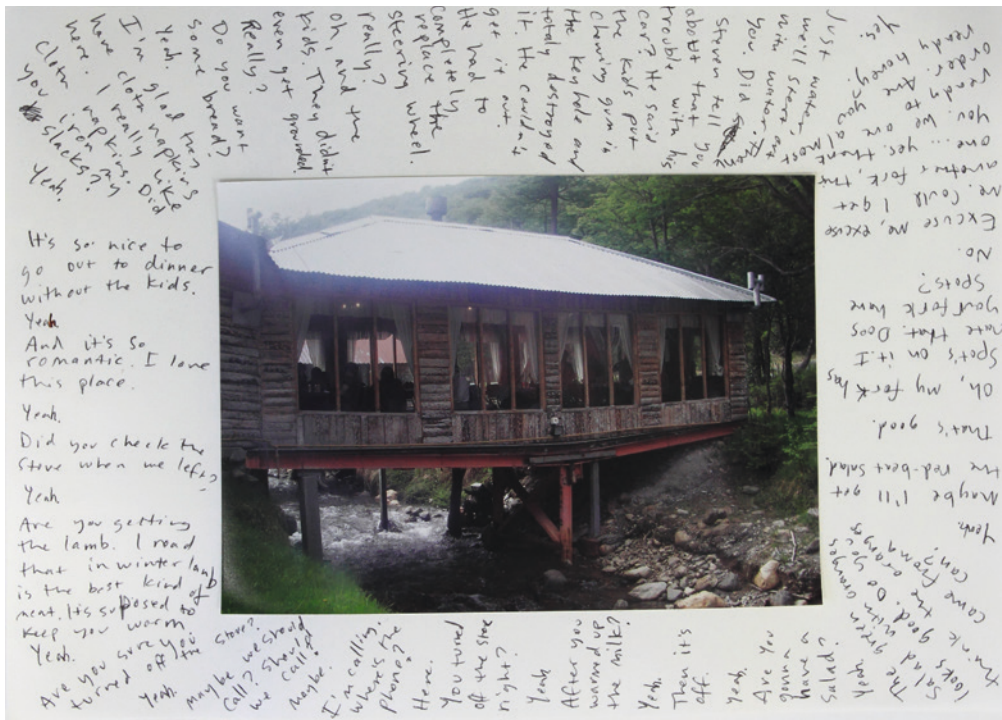 It's so nice to
go out to dinner
without the kids.
Yeah
And it's so
romantic. I love
this place.
Yeah.
Did you check the
stove when we left?
Yeah
Are you getting
the lamb. I read
that in winter lamb
is the best kind of
meat. It's suposed to
keep you warm
Yeah.
Are you sure you
turned off the stove?
Yeah.
Maybe we should
call? Should
we call?
Maybe.
I'm calling.
Where is the
phone?
Here.
You turned
off the stove
right?
Yeah
After you
warmed up
the milk?
Yeah.
Then it's
off.
Yeah.
Are you
gonna
have a
salad?
Yeah
The green
salad with oranges
looks good. Do you
think the orange
came from a
can?
Yeah.
Maybe I'll get
the red-beat salad.
That's good.
Oh, my fork has
spot's on it I
hate that. Does
your fork have
spots?
No.
Excuse me, excuse
me. Could I get
another fork, this
one ... yes. thank
you. We are almost
ready to
order. Are you
ready honey?
Yes.
Just water,
we'll share, and
with water. Thank
you. Did
Steven tell you
about that
trouble with his
car? He said
the kids put
chewing gum in
the key hole and
totaly destroyed
it. He couldn't
get it out.
He had to
completely
replace the
steering wheel.
really?
Oh, and the
kids. They didn't
even get grounded
Really?
Do you want
some bread?
Yeah.
I'm glad they
have cloth napkins
here. I really like
cloth napkins. Did
you iron my
slacks?
Yeah.